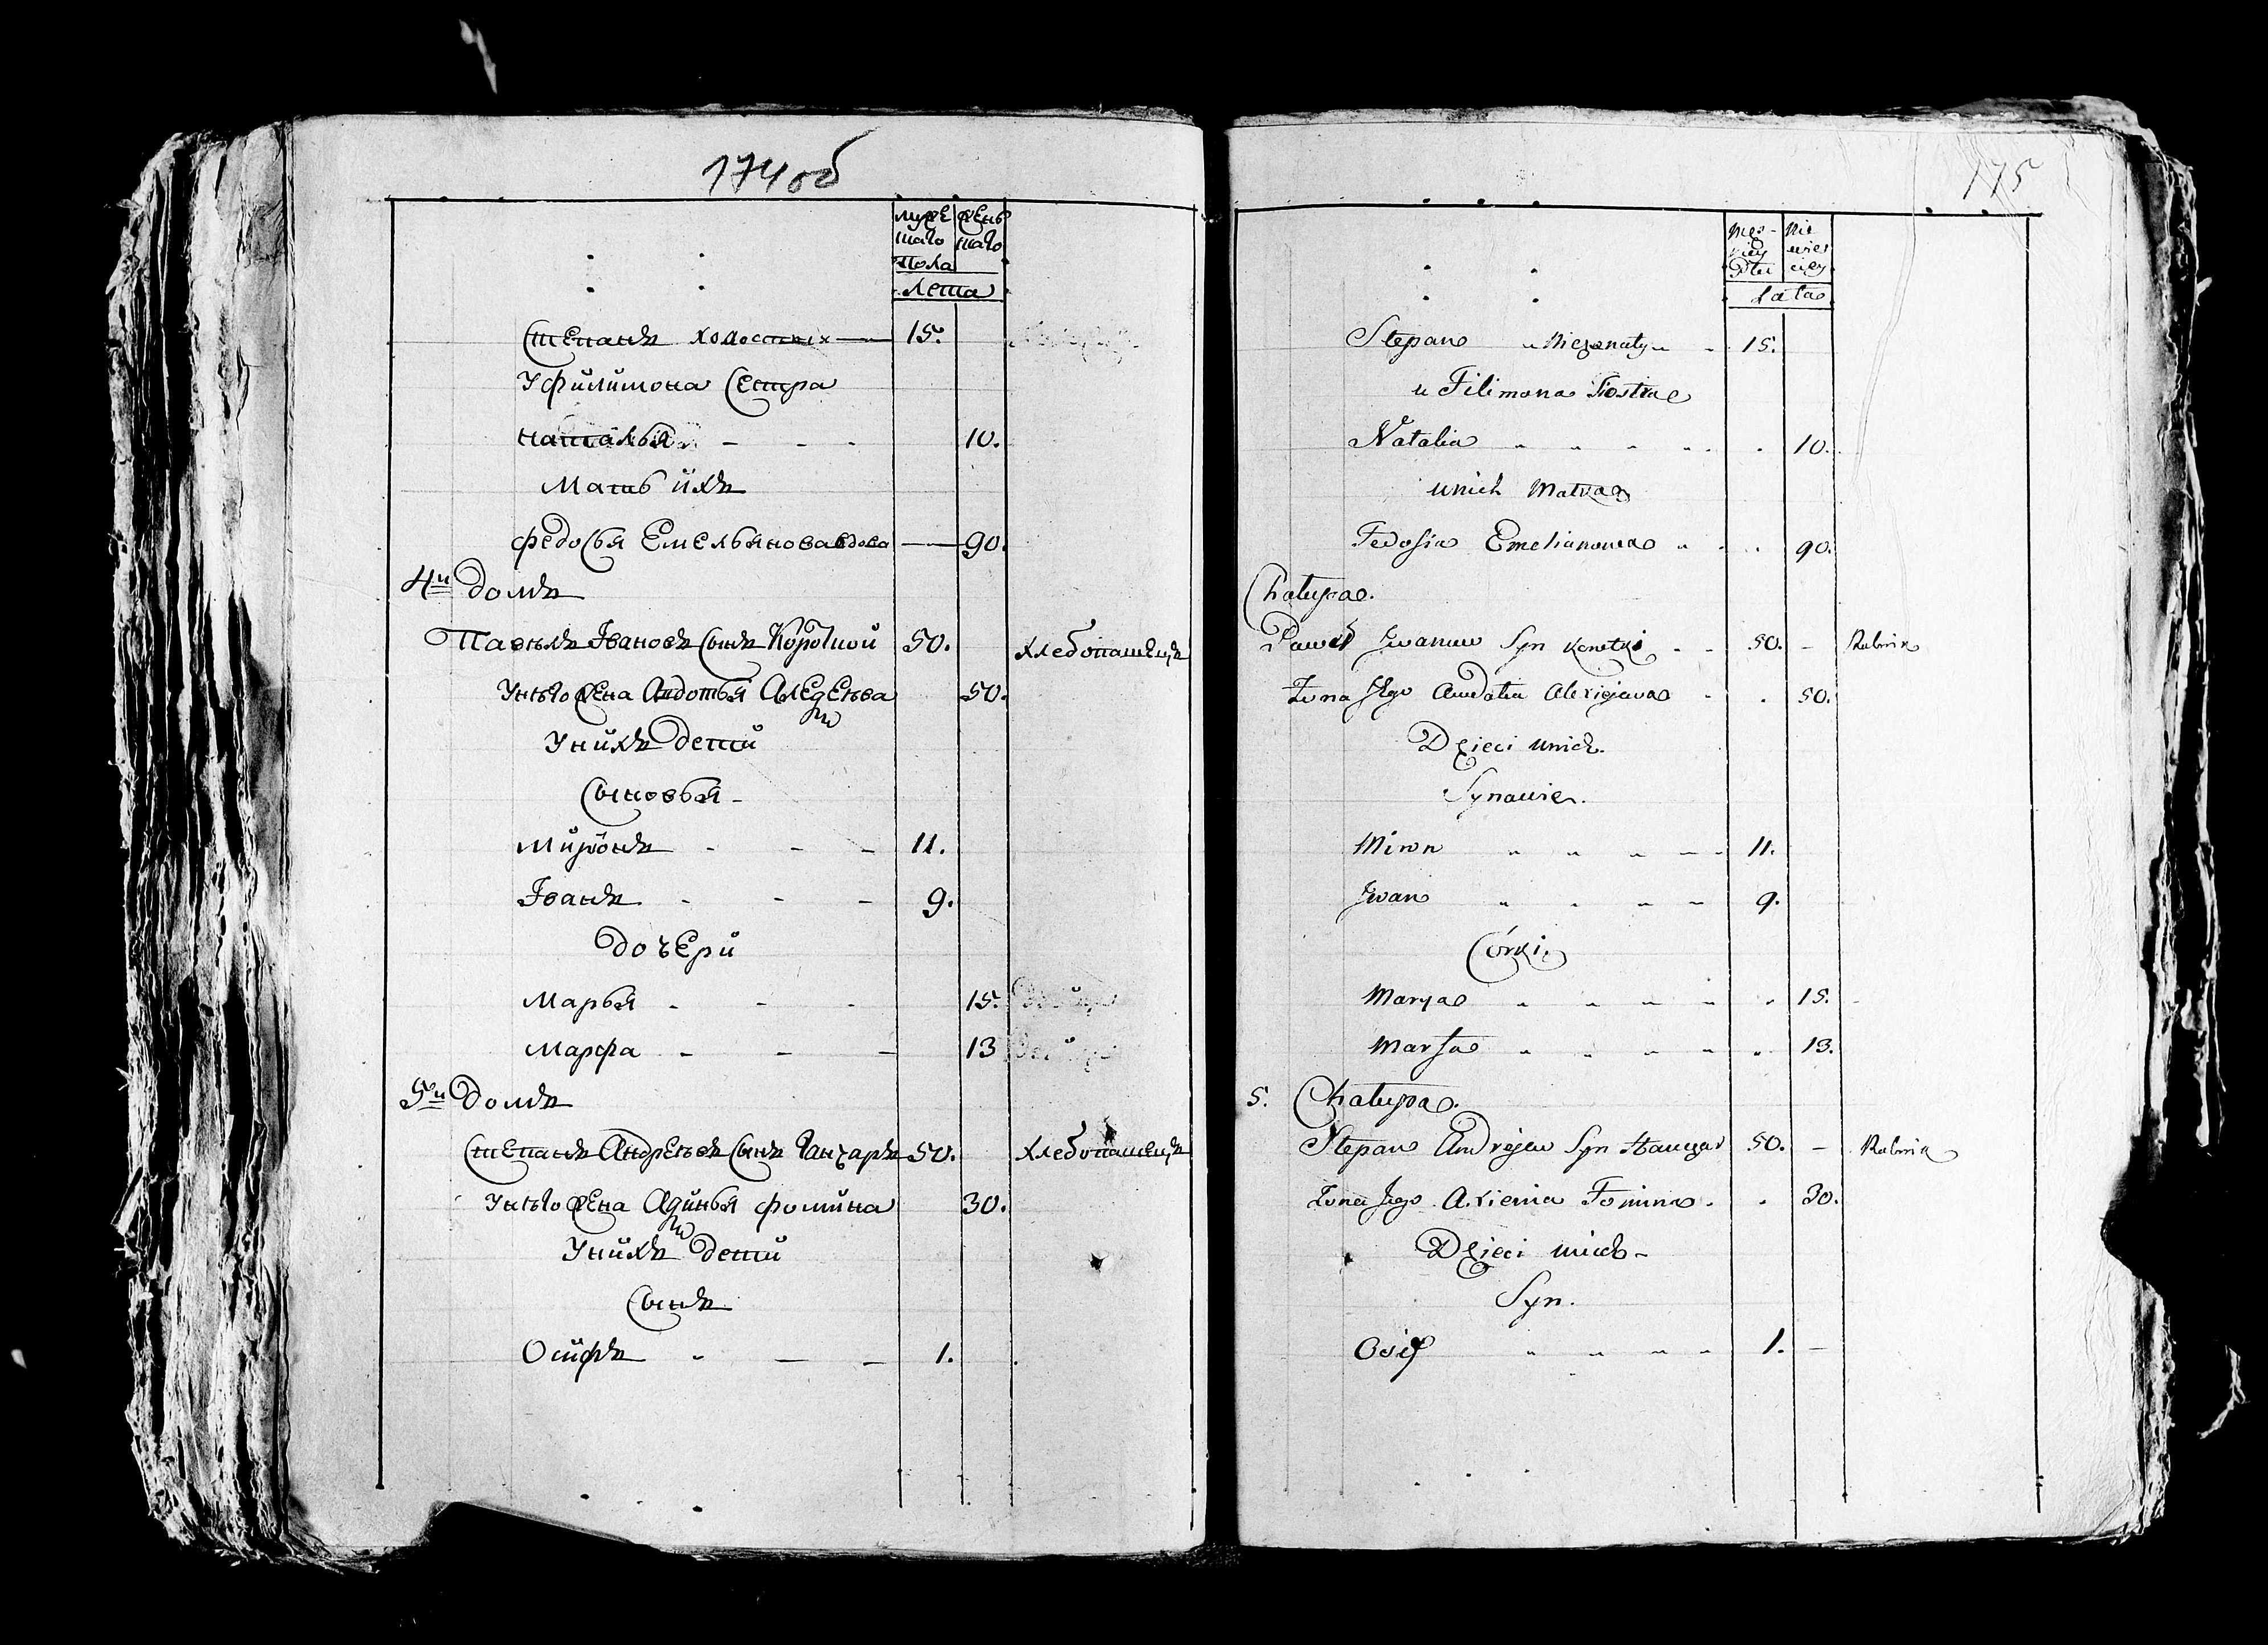 174об
муже женс
скаго скаго
пола
Лета
Степанъ холостых 15.
У Филимона Сестра
наталья 10.
Мать ихъ
федосья Емельянова вдова 90.
4й домъ
Павелъ Ивановъ Сынъ Короткой 50. хлебопашецъ
У него жена Авдотья Алексеева 50.
У нихъ дети
Сыновья
Миронъ 11.
Иванъ 9.
дочери
Марья 15.
Марфа 13
5й домъ
Степанъ Андреевъ Сынъ Ганчаръ 50. хлебопашецъ
У него жена Аксинья фомина 30.
У нихъ дети
Сынъ
Осифъ 1.
175
Męs- Nie
kiey wies
Płci ciey
Lata
Stepan Nieżonaty 15.
u Filimona Siostra
Natalia 10.
u nich Matka
Fedosia Emelianowa 90.
Chałupa.
Paweł Iwanow Syn 50. Rolnik
Żona Jego Awdotia Alexiejewa 50.
Dzieci u nich.
Synowie.
Miron 11.
Iwan 9.
Córki.
Marya 15.
Marfa 13.
5. Chałupa.
Stepan Andrejew Syn Hanczar 50. Rolnik
Żona Jego Axienia Fomina 30.
Dzieci u nich
Syn.
Osif 1.